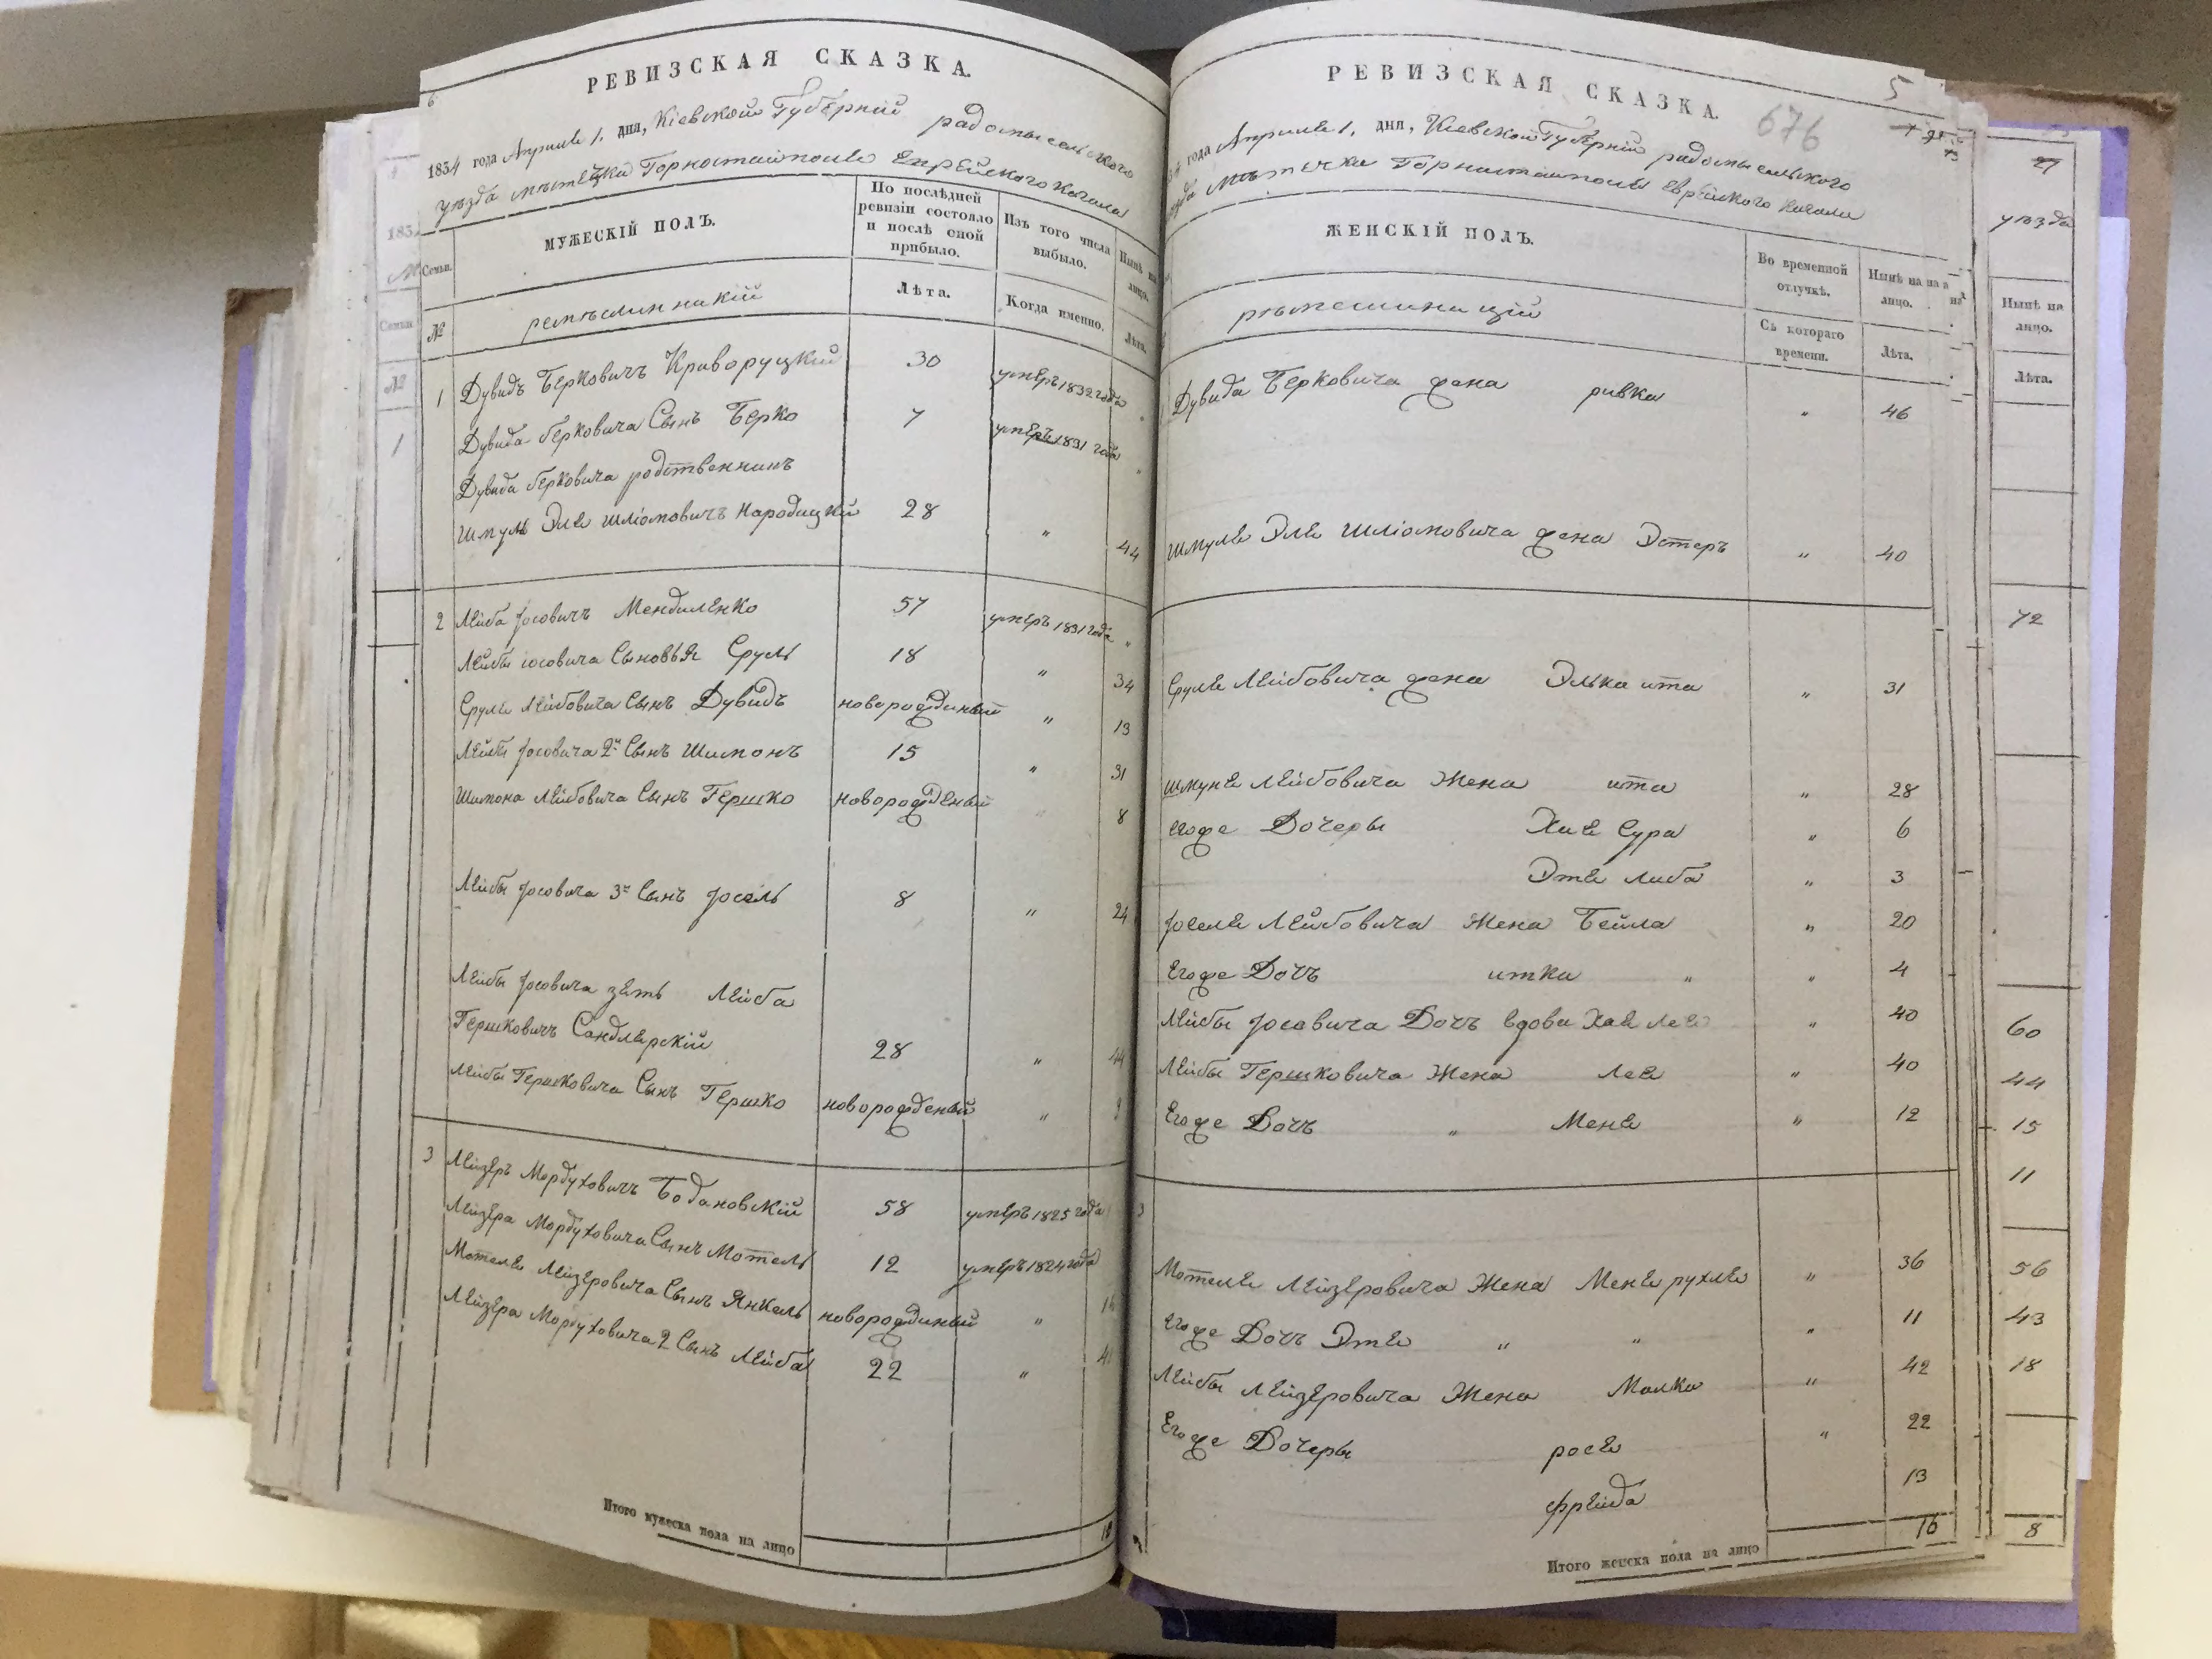 6
РЕВИЗСКАЯ СКАЗКА.
1834 года Апреля 1, дня, Кіевской Губерніи радомысельского
уезда местечка Горностайполя Еврейского Кагала
Семьи. МУЖЕСКІЙ ПОЛЪ. По послѣдней ревизіи состояло и послѣ оной прибыло. Изъ того числа выбыло. Нынѣ на лицо.
№ Лѣта. Когда именно. Лѣта.
1 Дувидъ Берковичъ Криворуцкій 30 умеръ 1832 года "
Дувида Берковича Сынъ Берко 7 умеръ 1831 года "
Дувида Берковича родственникъ
Шмуль Эле Шліомовичъ Народицкій 28 " 44
2 Лейба Іосовичъ Мендиленко 57 умеръ 1831 года "
Лейбы Іосовича Сыновья Сруль 18 " 34
Сруля Лейбовича Сынъ Дувидъ новорожденый " 13
Лейбы Іосовича 2й Сынъ Шимонъ 15 " 31
Шимона Лейбовича Сынъ Гершко новорожденый " 8
Лейбы Іосовича 3й Сынъ Іосель 8 " 24
Лейбы Іосовича зять Лейба
Гершковичъ Сандлерскій 28 " 44
Лейбы Гершковича Сынъ Гершко новорожденый "
3 Лейзеръ Мордуховичъ 58 умеръ 1825 года
Лейзера Мордуховича Сынъ Мотель 12 умеръ 1824 года
Мотеля Лейзеровича Сынъ Янкель новорожденый "
Лейзера Мордуховича 2 Сынъ Лейба 22 "
Итого мужеска пола на лицо
5
676
РЕВИЗСКАЯ СКАЗКА.
года Апреля 1, дня, Кіевской Губерніи радомысельского
местечка Горностайполя Еврейского Кагала
ЖЕНСКІЙ ПОЛЪ. Во временной отлучкѣ. Нынѣ на лицо.
Съ котораго времени. Лѣта.
Дувида Берковича жена ривка " 46
Шмуля Эля Шліомовича жена Эстеръ " 40
Сруля Лейбовича жена Элька ита " 31
Лейбовича Жена ита " 28
егоже Дочеры Хая Сура " 6
Эте либа " 3
Іоселя Лейбовича Жена Бейла " 20
Егоже Дочъ итка " " 4
Лейбы Іосовича Дочъ вдова Хае " 40
Лейбы Гершковича Жена Лея " 40
Егоже Дочъ " Меня " 12
3
Мотеля Лейзеровича Жена Меня рухля " 36
Егоже Дочъ Этя " " " 11
Лейбы Лейзеровича Жена Малка " 42
Егоже Дочеры рося " 22
фрейда 13
Итого женска пола на лицо 16
уезда
Нынѣ на лицо.
Лѣта.
72
60
44
15
11
56
43
18
8
183
Семьи.
№
1